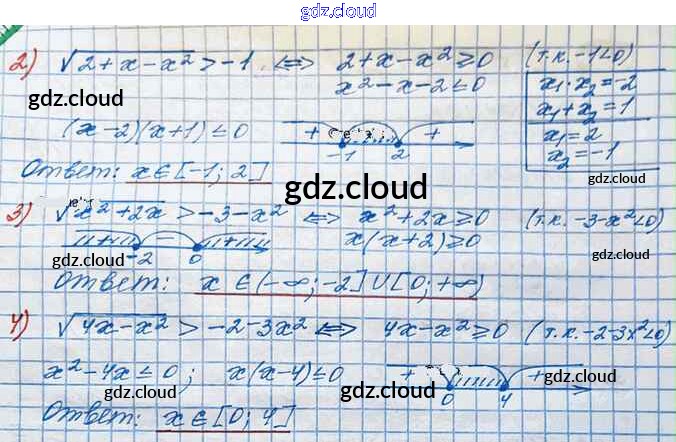 gdz.cloud
2) √(2+x-x²) > -1 ⟺ 2+x-x² ≥ 0 (т.к. -1<0)
x²-x-2 ≤ 0
x₁·x₂ = -2
x₁+x₂ = 1
x₁ = 2
x₂ = -1
gdz.cloud
gdz.cloud
(x-2)(x+1) ≤ 0
+ +
-1 2
Ответ: x∈[-1; 2]
gdz.cloud
gdz.cloud
3) √(x²+2x) > -3-x² ⟺ x²+2x ≥ 0 (т.к. -3-x²<0)
x(x+2) ≥ 0
+ - +
-2 0
gdz.cloud
gdz.cloud
Ответ: x∈(-∞; -2]∪[0; +∞)
4) √(4x-x²) > -2-3x² ⟺ 4x-x² ≥ 0 (т.к. -2-3x²<0)
x²-4x ≤ 0; x(x-4) ≤ 0
+ +
0 4
gdz.cloud
gdz.cloud
gdz.cloud
Ответ: x∈[0; 4]